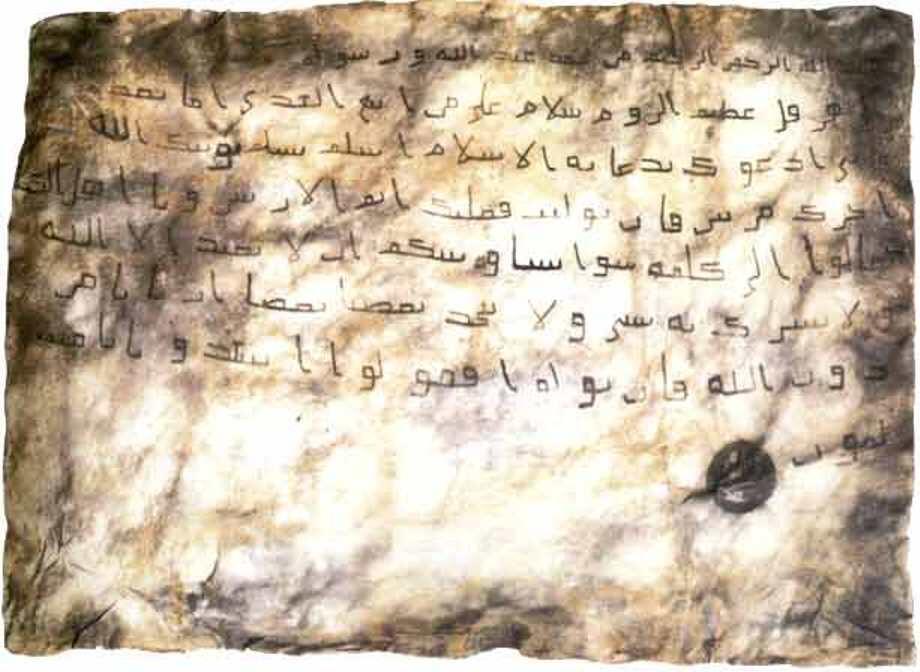 الله الرحمن الرحيم من محمد عبد الله و رسوله
هرقل عظيم الروم سلام على من اتبع الهدى اما بعد
ادعوك بدعاية الاسلام اسلم تسلم يوتك الله
اجرك مرتين فان توليت فعليك اثم الاريسين ويا اهل الكت
تعالوا الى كلمة سوا بيننا وبينكم ان لا نعبد الا الله
ولا نشرك به شى ولا يتخذ بعضنا بعضا اربابا من
دون الله فان تولوا فقولوا اشهدوا بانا مس
لمون